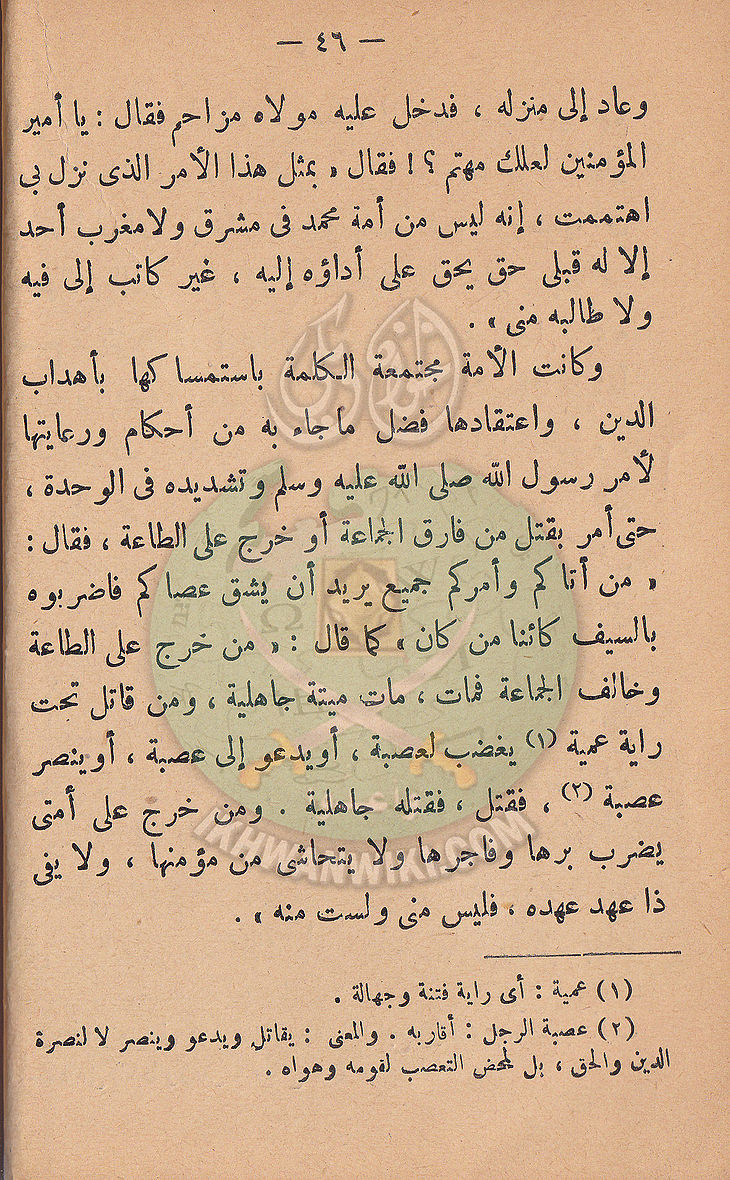 — ٤٦ —
وعاد إلى منزله ، فدخل عليه مولاه مزاحم فقال : يا أمير
المؤمنين لعلك مهتم ؟ ! فقال « بمثل هذا الأمر الذى نزل بى
اهتممت ، إنه ليس من أمة محمد فى مشرق ولا مغرب أحد
إلا له قبلى حق يحق على أداؤه إليه ، غير كاتب إلى فيه
ولا طالبه منى » .
وكانت الأمة مجتمعة الكلمة باستمساكها بأهداب
الدين ، واعتقادها فضل ماجاء به من أحكام ورعايتها
لأمر رسول الله صلى الله عليه وسلم وتشديده فى الوحدة ،
حتى أمر بقتل من فارق الجماعة أو خرج على الطاعة ، فقال :
« من أتاكم وأمركم جميع يريد أن يشق عصاكم فاضربوه
بالسيف كائنا من كان » كما قال : « من خرج على الطاعة
وخالف الجماعة فمات ، مات ميتة جاهلية ، ومن قاتل تحت
راية عمية (١) يغضب لعصبة ، أويدعو إلى عصبة ، أو ينصر
عصبة (٢) ، فقتل ، فقتله جاهلية . ومن خرج على أمتى
يضرب برها وفاجرها ولا يتحاشى من مؤمنها ، ولا يفى
ذا عهد عهده ، فليس منى ولست منه » .
(١) عمية : أى راية فتنة وجهالة .
(٢) عصبة الرجل : أقاربه . والمعنى : يقاتل ويدعو وينصر لا لنصرة
الدين والحق ، بل لمحض التعصب لقومه وهواه .
IKHWANWIKI.COM